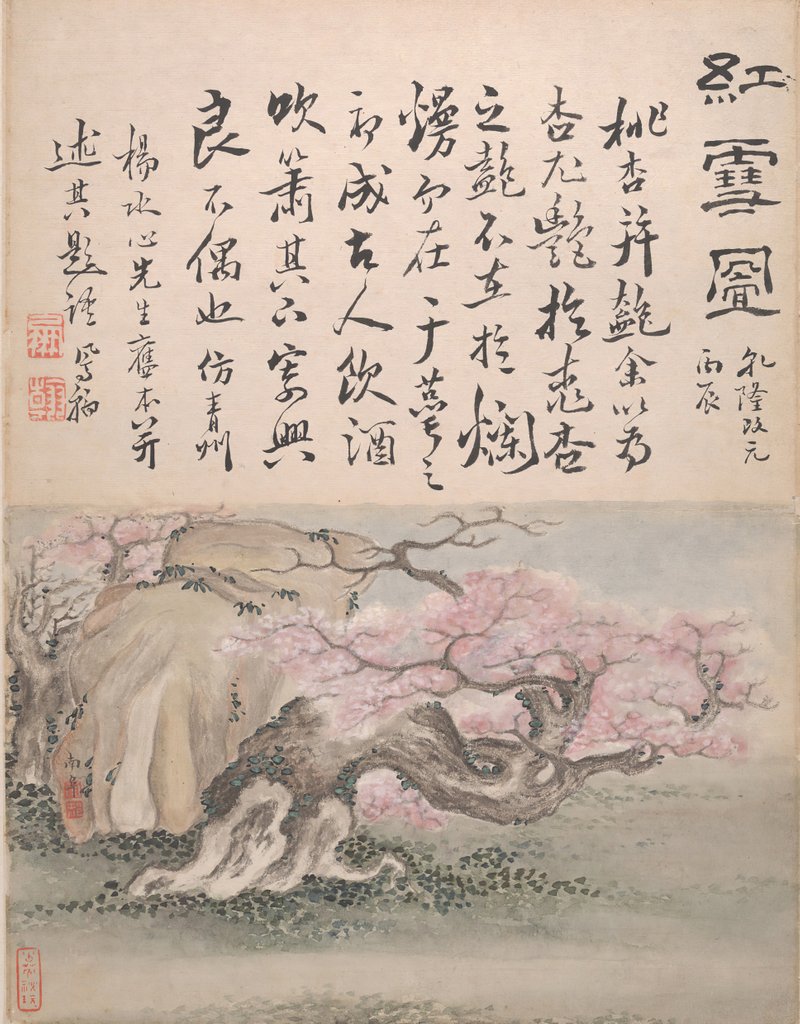 紅雪圖
乾隆改元
丙辰
桃杏並艷余以為
杏尤艷於桃杏
之艷不在於爛
熳而在于蓓萼之
初成古人飲酒
吹簫其下寄興
良不偶也仿青州
楊水心先生舊本并
述其題語 鳳翰
南阜